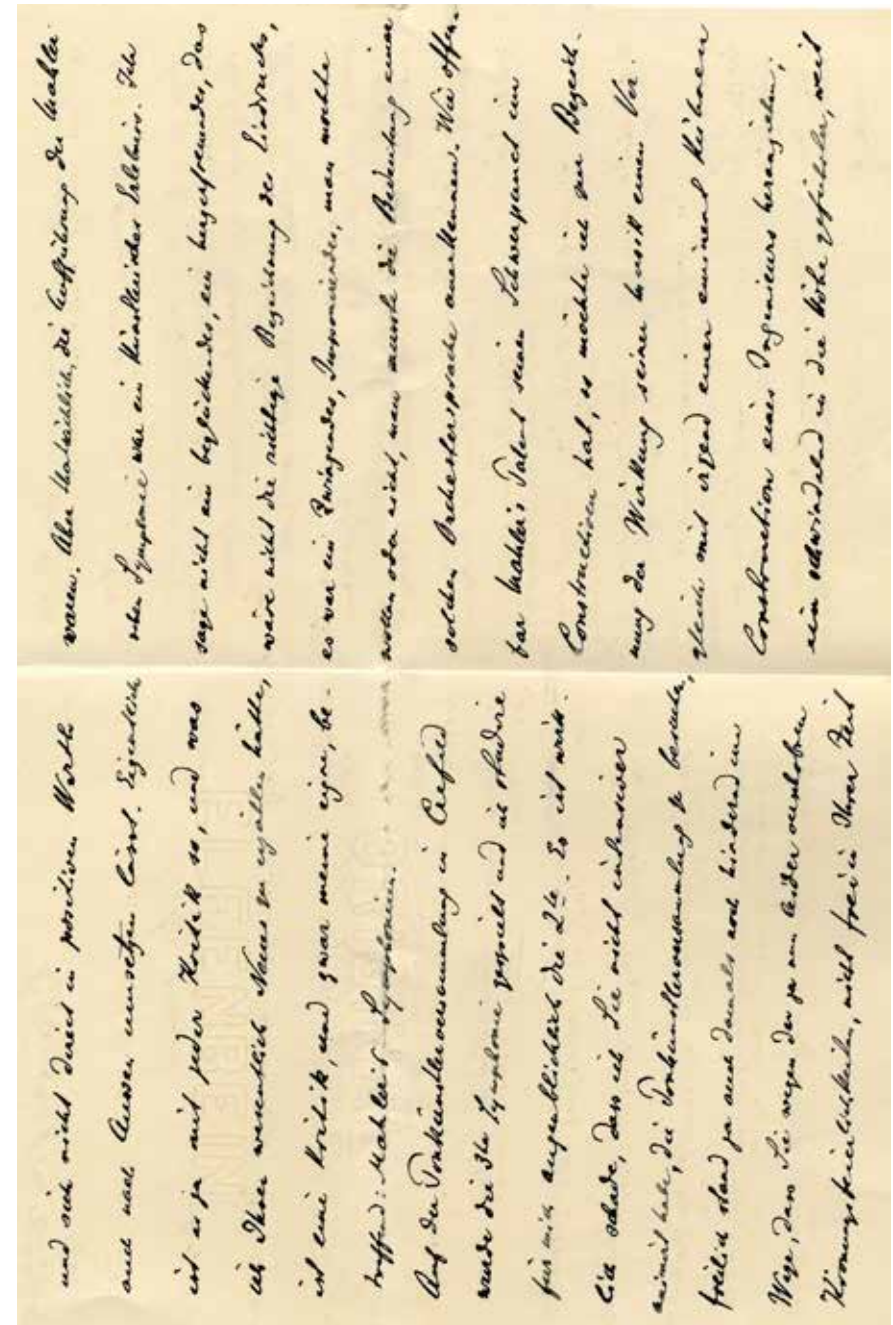 und sich nicht direct in positiven Werth
auch nach Aussen umsetzen lässt. Eigentlich
ist es ja mit jeder Kritik so, und was
ich Ihnen wesentlich Neues zu erzählen hätte,
ist eine Kritik, und zwar meine eigne, be-
treffend: Mahler's Symphonieen.
Auf der Tonkünstlerversammlung in Crefeld
wurde die 3te Symphonie gespielt und ich studire
für mich augenblicklich die 2te. Es ist wirk-
lich schade, dass ich Sie nicht intensiver
animirt habe, die Tonkünstlerversammlung zu besuchen,
freilich stand ja auch damals noch hindernd im
Wege, dass Sie wegen der ja nun leider verschobenen
Krönungsfeierlichkeiten, nicht frei in Ihrer Zeit
waren. Aber thatsächlich, die Aufführung der Mahler
schen Symphonie war ein künstlerisches Erlebniss. Ich
sage nicht ein beglückendes, ein herzerfreuendes, das
wäre nicht die richtige Bezeichnung des Eindrucks,
es war ein Zwingendes, Imponierendes, man mochte
wollen oder nicht, man musste die Bedeutung einer
solchen Orchestersprache anerkennen. Wie offen-
bar Mahler's Talent seinen Schwerpunct im
Constructiven hat, so möchte ich zur Bezeich-
nung der Wirkung seiner Musik einen Ver-
gleich mit irgend einer eminent kühnen
Construction eines Ingenieurs heranziehen;
ein schwindelnd in die Höhe geführter, weit